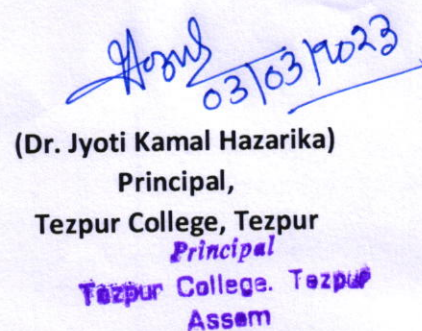 03/03/2023
(Dr. Jyoti Kamal Hazarika)
Principal,
Tezpur College, Tezpur
Principal
Tezpur College. Tezpur
Assam